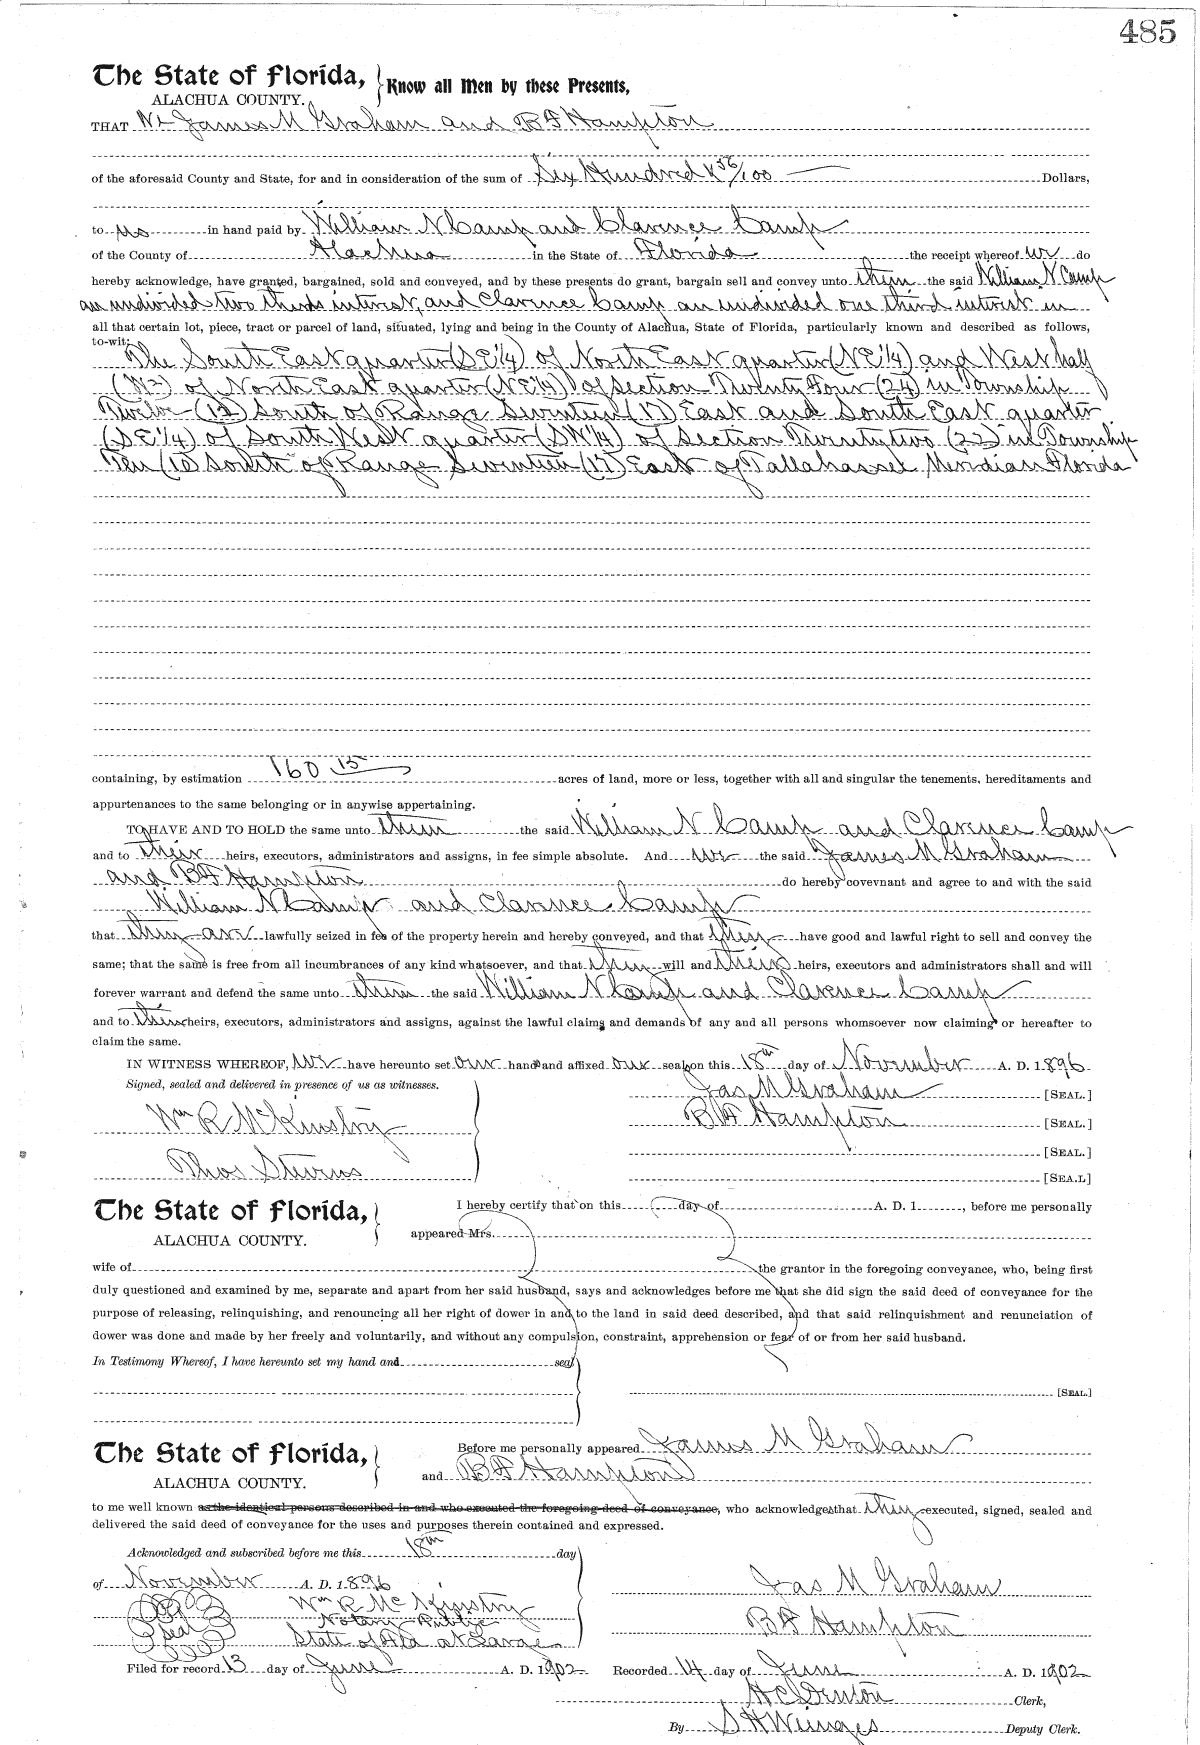 485
The State of Florida, Know all Men by these Presents,
ALACHUA COUNTY.
THAT We James M Graham and B F Hampton
of the aforesaid County and State, for and in consideration of the sum of Six Hundred & 56/100 Dollars,
to us in hand paid by William N Camp and Clarence Camp
of the County of Alachua in the State of Florida the receipt whereof we do
hereby acknowledge, have granted, bargained, sold and conveyed, and by these presents do grant, bargain sell and convey unto them the said William N Camp
an undivided two thirds interest, and Clarence Camp an undivided one third interest in
all that certain lot, piece, tract or parcel of land, situated, lying and being in the County of Alachua, State of Florida, particularly known and described as follows,
to-wit:
The South East quarter (SE 1/4) of North East quarter (NE 1/4) and West half
(W 1/2) of North East quarter (NE 1/4) of Section Twenty Four (24) in Township
Twelve (12) South of Range Seventeen (17) East and South East quarter
(SE 1/4) of South West quarter (SW 1/4) of Section Twenty two (22) in Township
Ten (10) South of Range Seventeen (17) East of Tallahassee Meridian Florida
containing, by estimation 160 15 acres of land, more or less, together with all and singular the tenements, hereditaments and
appurtenances to the same belonging or in anywise appertaining.
TO HAVE AND TO HOLD the same unto them the said William N Camp and Clarence Camp
and to their heirs, executors, administrators and assigns, in fee simple absolute. And we the said James M Graham
and B F Hampton do hereby covevnant and agree to and with the said
William N Camp and Clarence Camp
that they are lawfully seized in fee of the property herein and hereby conveyed, and that they have good and lawful right to sell and convey the
same; that the same is free from all incumbrances of any kind whatsoever, and that they will and their heirs, executors and administrators shall and will
forever warrant and defend the same unto them the said William N Camp and Clarence Camp
and to their heirs, executors, administrators and assigns, against the lawful claims and demands of any and all persons whomsoever now claiming or hereafter to
claim the same.
IN WITNESS WHEREOF, We have hereunto set our hand and affixed our seal on this 18th day of November A. D. 1896
Signed, sealed and delivered in presence of us as witnesses.
Jas M Graham [SEAL.]
Wm R McKinstry B F Hampton [SEAL.]
[SEAL.]
Thos Stevens [SEA.L]
The State of Florida, I hereby certify that on this day of A. D. 1, before me personally
ALACHUA COUNTY. appeared Mrs.
wife of the grantor in the foregoing conveyance, who, being first
duly questioned and examined by me, separate and apart from her said husband, says and acknowledges before me that she did sign the said deed of conveyance for the
purpose of releasing, relinquishing, and renouncing all her right of dower in and to the land in said deed described, and that said relinquishment and renunciation of
dower was done and made by her freely and voluntarily, and without any compulsion, constraint, apprehension or fear of or from her said husband.
In Testimony Whereof, I have hereunto set my hand and seal
[SEAL.]
The State of Florida, Before me personally appeared James M Graham
ALACHUA COUNTY. and B F Hampton
to me well known as the identical persons described in and who executed the foregoing deed of conveyance, who acknowledges that they executed, signed, sealed and
delivered the said deed of conveyance for the uses and purposes therein contained and expressed.
Acknowledged and subscribed before me this 18th day
of November A. D. 1896 Jas M Graham
Wm R McKinstry
Seal Notary Public B F Hampton
State of Fla at Large
Filed for record 13 day of June A. D. 1902 Recorded 14 day of June A. D. 1902
H C Denton Clerk,
By S H Wienges Deputy Clerk.